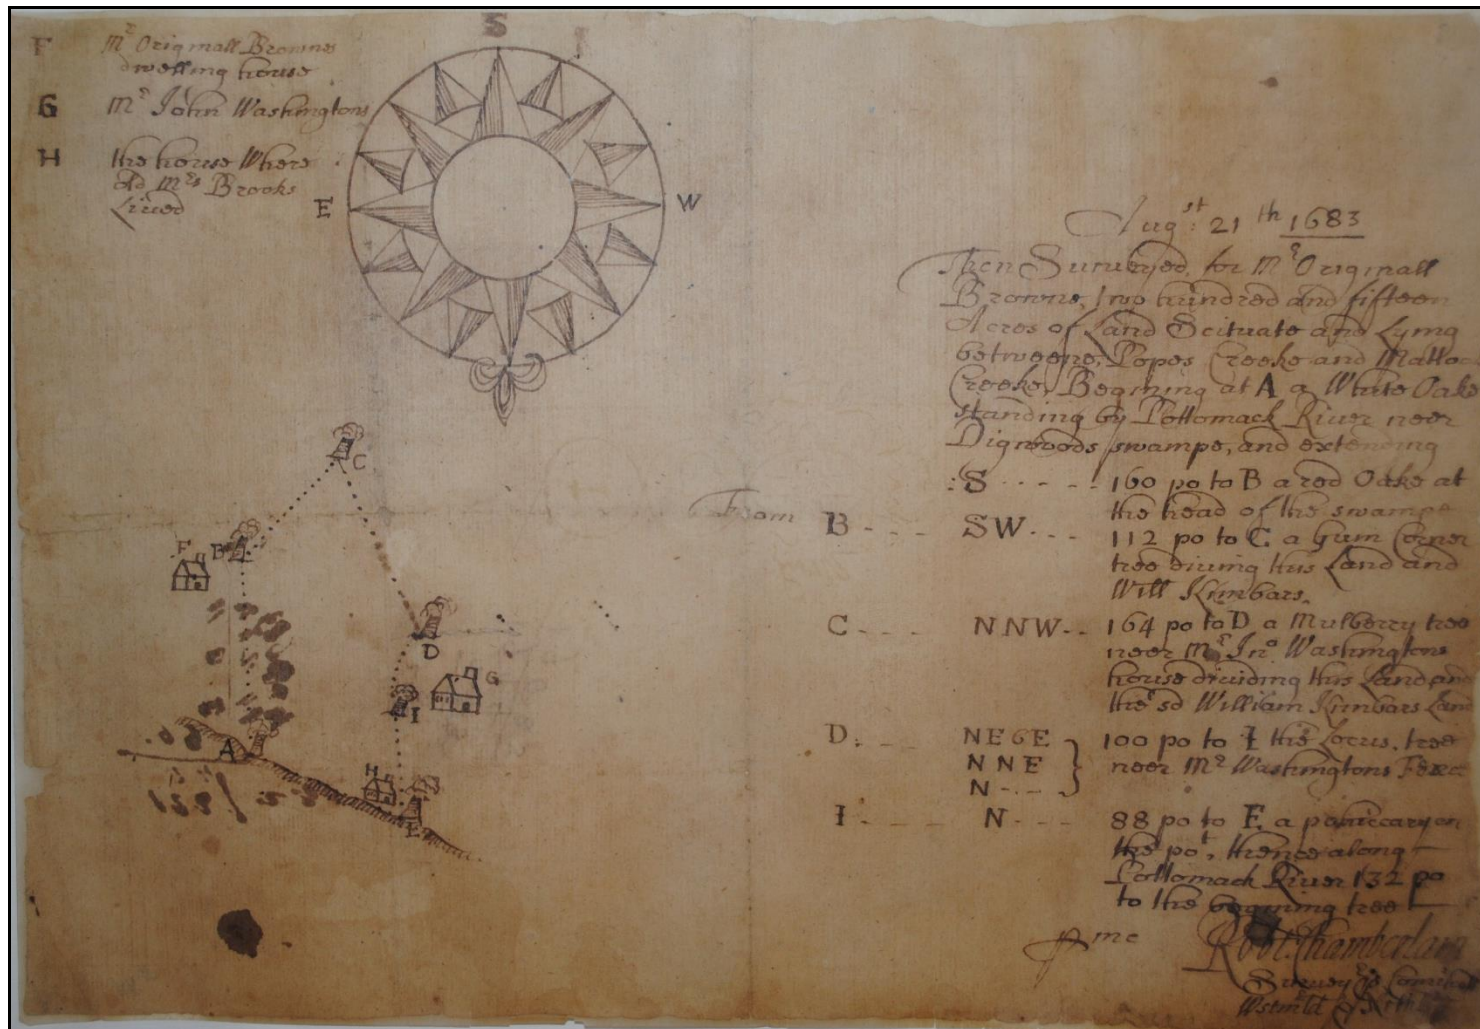 F Mr Originall Brownes
dwelling house
G Mr John Washingtons
H the house Where
old Mrs Brooks
Lived
S
E
W
Augst: 21th 1683
Then Surveyed for Mr Originall
Browne, two hundred and fifteen
Acres of Land Scituate and Lying
betweene, Popes Creeke and Mattox
Creeke, Begining at A a White Oake
standing by Pottomack River neer
Digwoods swampe, and extending
:S - - - - 160 po to B a red Oake at
the head of the swampe
From B - - - SW - - - 112 po to C. a Gum Corner
tree diviing this Land and
Will Kimbars.
C - - - - NNW - - 164 po to D a Mulberry tree
neer Mr Jno Washingtons
house dividing this Land and
the sd William Kimbars Land
D. - - - NE6E
NNE } 100 po to I the Locus, tree
N - - - neer Mr Washingtons
I - - - - N - - - 88 po to E, a
the pot, thence along
Pottomack River 132 po
to the begining tree
P me
Robt: Chamberlain
C
F
B
D
G
I
A
H
E